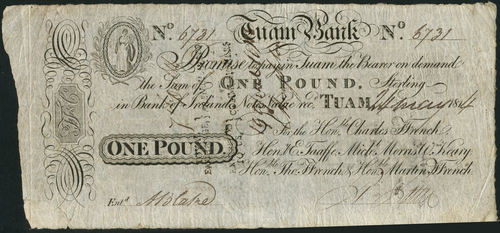 Nº 6731 Tuam Bank Nº 6731
I Promise to pay in Tuam the Bearer on demand
the Sum of ONE POUND, Sterling
in Bank of Ireland Notes value rec. TUAM, 1814
For the Honble Charles Ffrench
ONE POUND. Honble E. Taaffe Michl Morris N. Keary
Honble Thos Ffrench & Honble Martin Ffrench
Entd